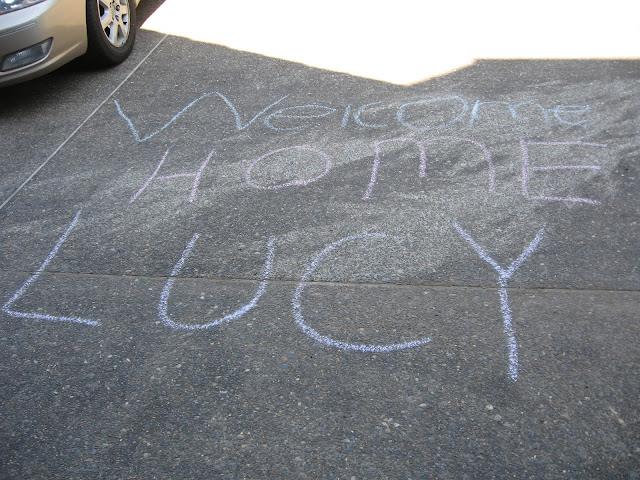 Welcome
HOME
LUCY